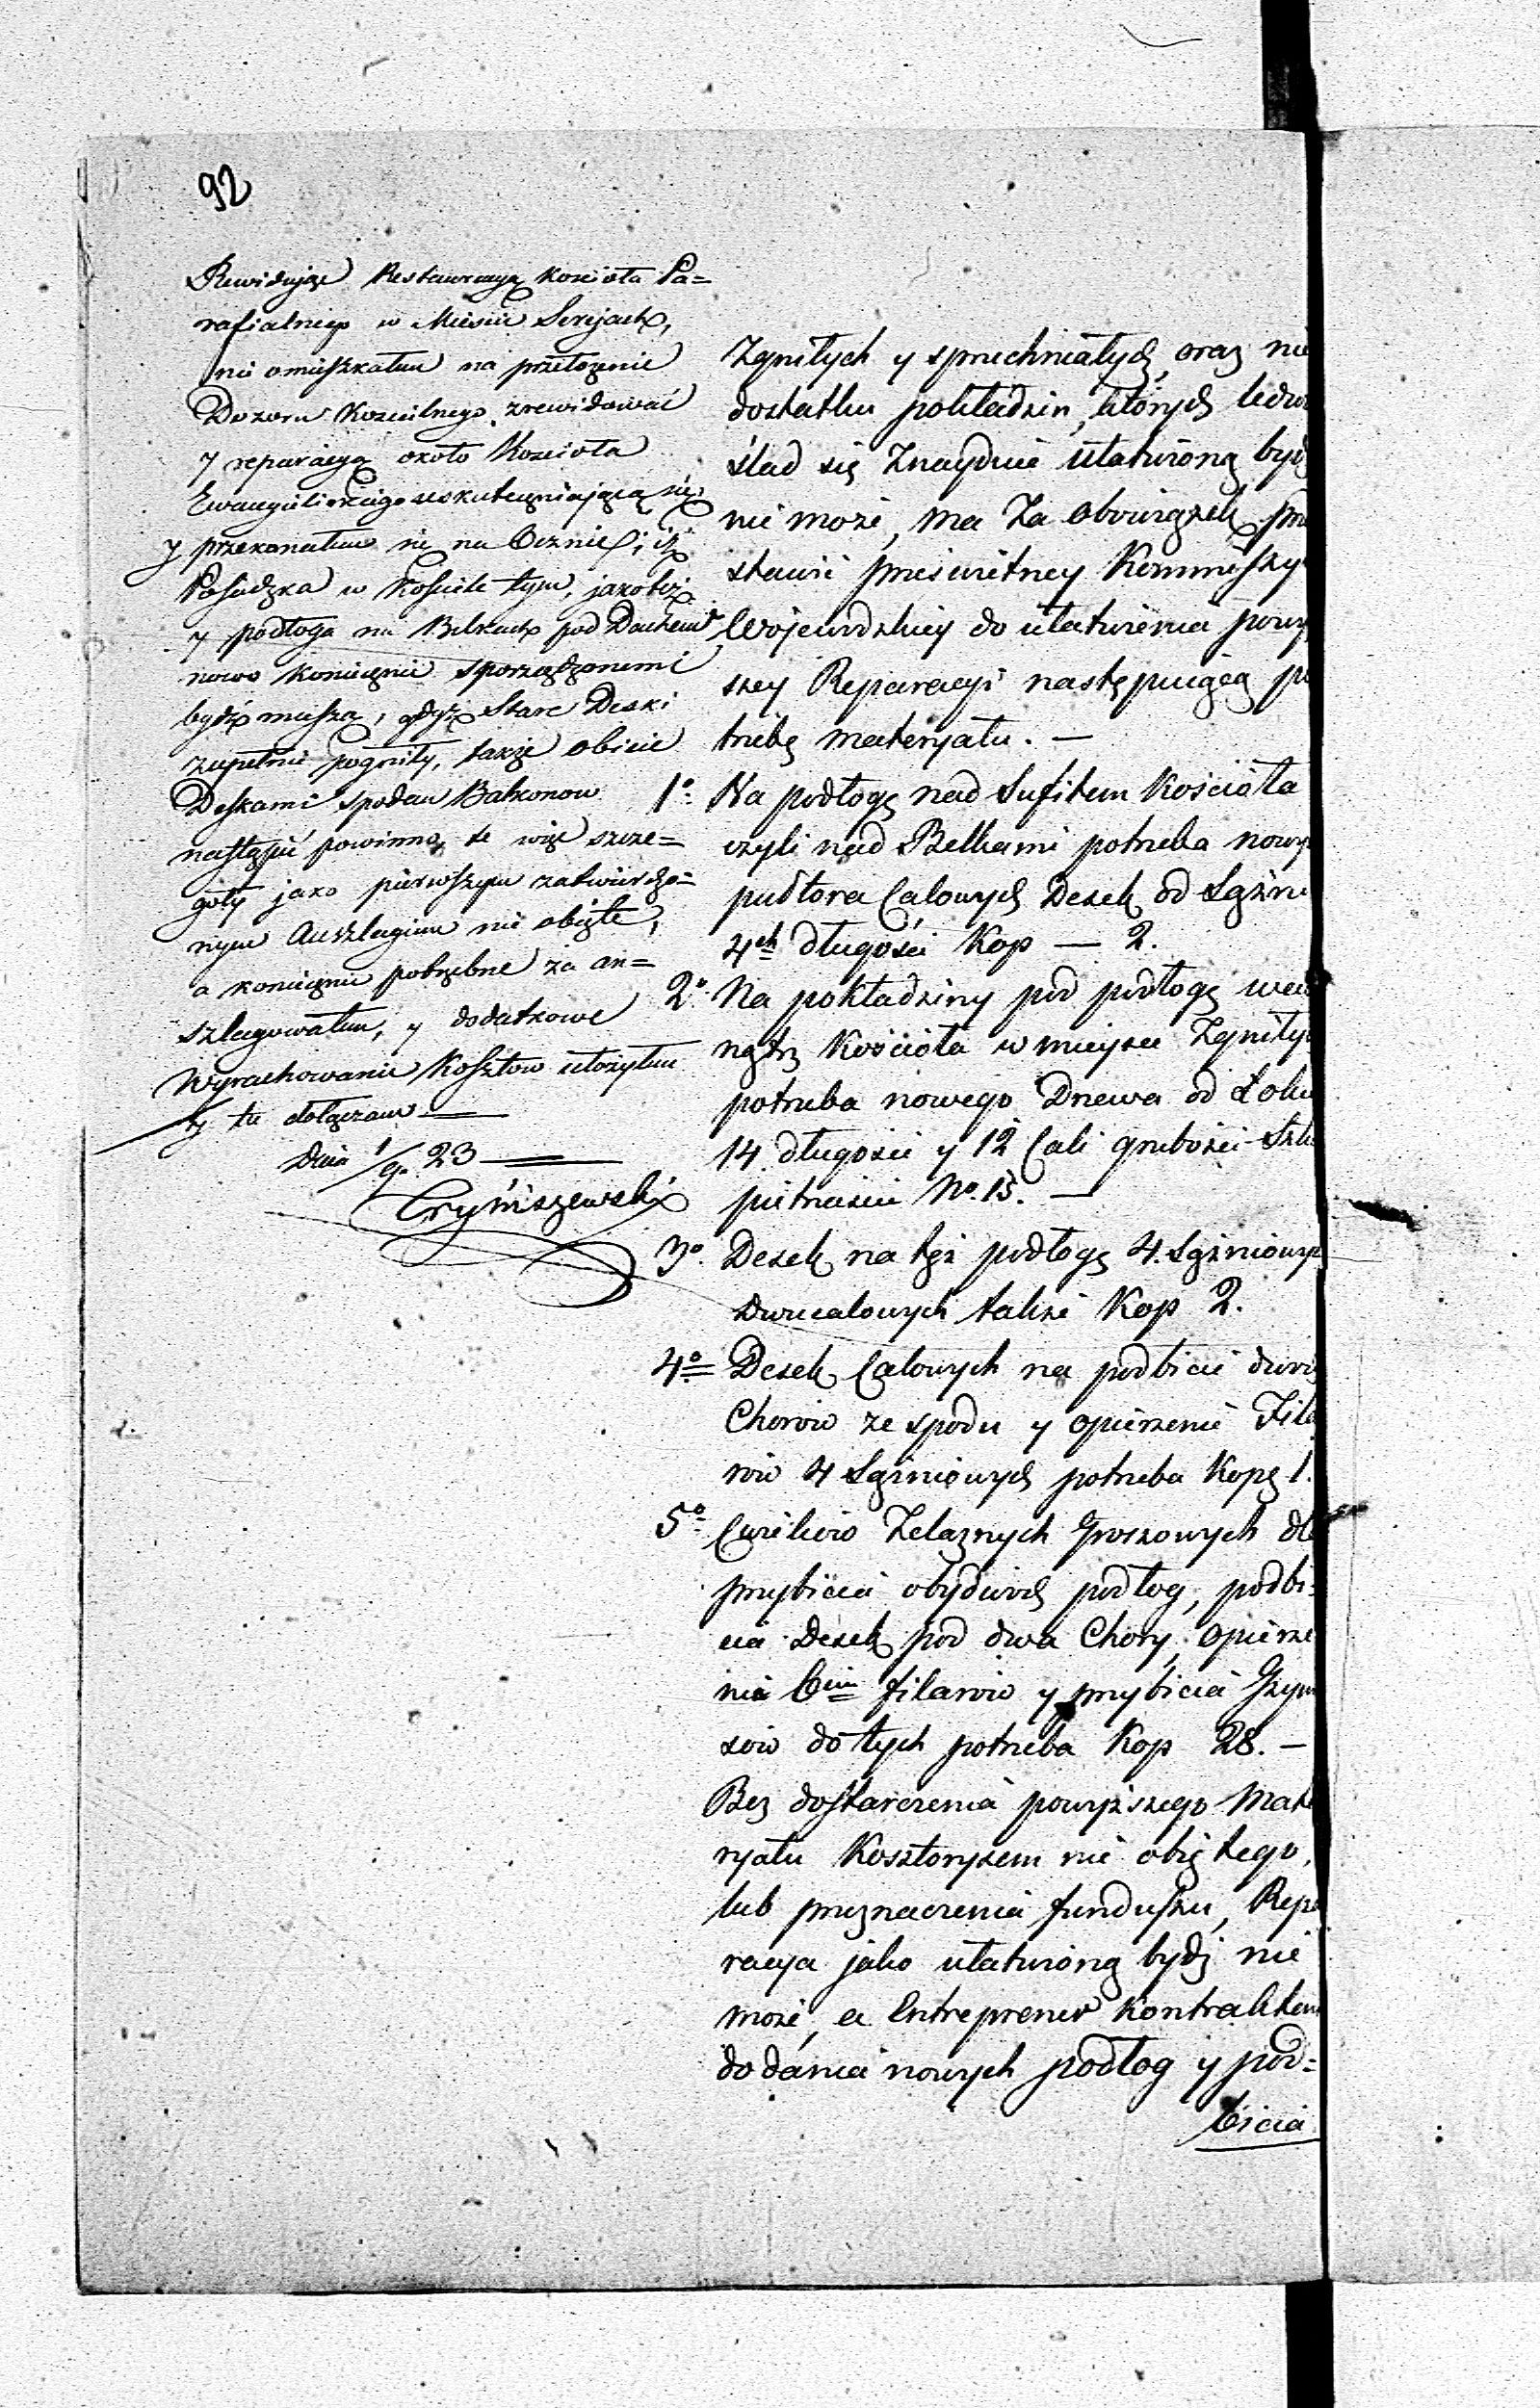 92
Rewidując Restauracyą Kościoła Pa=
rafialnego w Mieście Serejach,
nie omieszkałem na przełożenie
Dozoru Kościelnego zrewidować
y reparacyą około Kościoła
Ewangelickiego uskuteczniającą się,
y przekonałem się na Ocznie, iż
Posadzka w Kościele tym, jakoteż
y podłoga na Belkach pod Dachem
nowo koniecznie sporządzonemi
bydź muszą, gdyż Stare Deski
zupełnie pogniły, także obicie
Deskami spodem Balkonow
nastąpić powinno, te więc szcze=
guły jako pierwszym zatwierdzo=
nym Auszlagiem nie objęte,
a koniecznie potrzebne za an=
szlagowałem, y dodatkowe
Wyrachowanie Kosztow ułożyłem
y tu dołączam
Dnia 1/9 23
Zgniłych y spruchniałych, oraz nie
dostatku pokładzin, których ledwo
ślad się Znayduie ułatwioną bydź
nie może, ma Za obowiązek prze
stawić prześwietney Kommiſzy
Wojewodzkiey do ułatwienia powy
szey Reparacyi następuiącą po
trzebę materyału. —
1o Na podłogę nad Sufitem Kościoła
czyli nad Belkami potrzeba nowych
pułtora Calowych Desek od Sążni
4ch długości Kop — 2.
2o Na pokładziny pod podłogę wew
nątrz Kościoła w mieysce Zgniłych
potrzeba nowego Drzewa od Łokci
14 długości y 12 Cali grubości Sztu
piętnaście No. 15. —
3o Desek na tęż podłogę 4. Sążniowych
Dwucalowych także Kop 2.
4o Desek Calowych na podbicie dwóch
Chorów ze spodu y opierzenie Fila
rów 4 Sążniowych potrzeba Kopę 1.
5o Cwieków Żelaznych Groszowych dla
przybicia obydwóch podłog, podbi=
cia Desek pod dwa Chory, opierze
nia 6ciu filarów y przybicia Gzym
sów do tych potrzeba Kop 28. —
Bez dostarczenia powyższego Mate
ryału Kosztorysem nie objętego,
lub przeznaczenia funduszu, Repa
racya jako ułatwioną bydź nie
może, a Entreprener Kontraktem
do dania nowych podłog y pod=
bicia